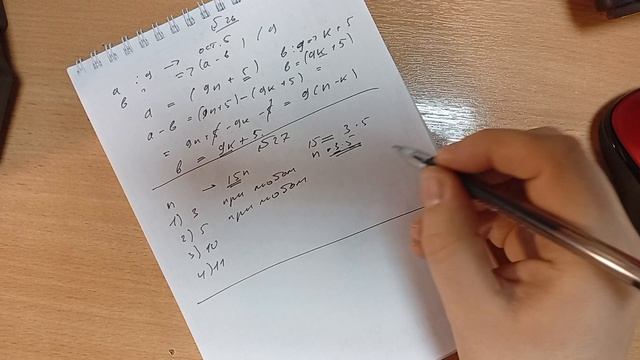 №26
a : 9 → ост. 5
b : 9 → k + 5
=> (a-b) / 9
a = (9n + 5) b = (9k + 5)
a - b = (9n+5) - (9k+5) =
= 9n + 5 - 9k - 5 = 9(n-k)
b = 9k + 5
№27
n → 15n 15 = 3·5
n·3·5
1) 3 при любом
2) 5 при любом
3) 10
4) 11